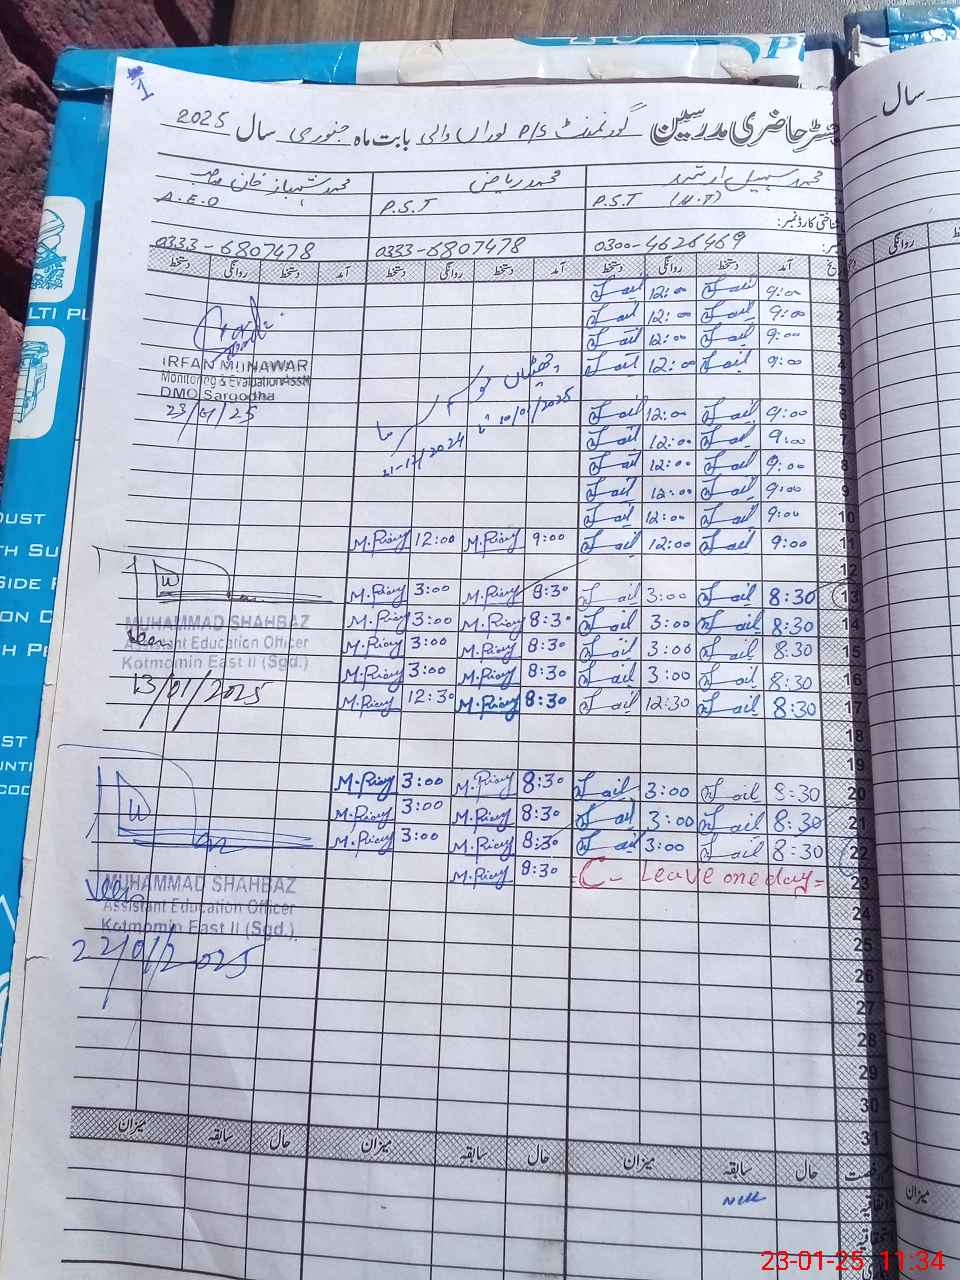 1
رجسٹر حاضری مدرسین گورنمنٹ P/S لوراں والی بابت ماہ جنوری سال 2025
محمد سہیل ارشد محمد ریاض محمد شہباز خان صاحب
P.S.T (H.T) P.S.T A.E.O
شناختی کارڈ نمبر:
0300-4626469 0333-6807478 0333-6807478
آمد دستخط روانگی دستخط آمد دستخط روانگی دستخط آمد دستخط روانگی دستخط
9:00 12:00
2 9:00 12:00
3 9:00 12:00
9:00 12:00
IRFAN MUNAWAR
Monitoring & Evaluation Asstt
DMO Sargodha
23/01/25
5
6 9:00 12:00
7 9:00 12:00
8 9:00 12:00
9 9:00 12:00
10 9:00 12:00
موسم
21-12/2024 تا 10/01/2025
11 9:00 12:00 9:00 M.Riaz 12:00 M.Riaz
12
13 8:30 3:00 8:30 M.Riaz 3:00 M.Riaz
14 8:30 3:00 8:30 M.Riaz 3:00 M.Riaz
15 8:30 3:00 8:30 M.Riaz 3:00 M.Riaz
16 8:30 3:00 8:30 M.Riaz 3:00 M.Riaz
17 8:30 12:30 8:30 M.Riaz 12:30 M.Riaz
MUHAMMAD SHAHBAZ
Assistant Education Officer
Kotmomin East II (Sgd.)
13/01/2025
18
19
20 8:30 3:00 8:30 M.Riaz 3:00 M.Riaz
21 8:30 3:00 8:30 M.Riaz 3:00 M.Riaz
22 8:30 3:00 8:30 M.Riaz 3:00 M.Riaz
23 =C- Leave one day= 8:30 M.Riaz
MUHAMMAD SHAHBAZ
Assistant Education Officer
Kotmomin East II (Sgd.)
22/01/2025
24
25
26
27
28
29
30
31
حال سابقہ میزان حال سابقہ میزان حال سابقہ میزان
Nill
سال
روانگی
میزان
LTI PL
DUST
TH SU
SIDE
ON C
H PE
ST
UNTI
COO
23-01-25 11:34